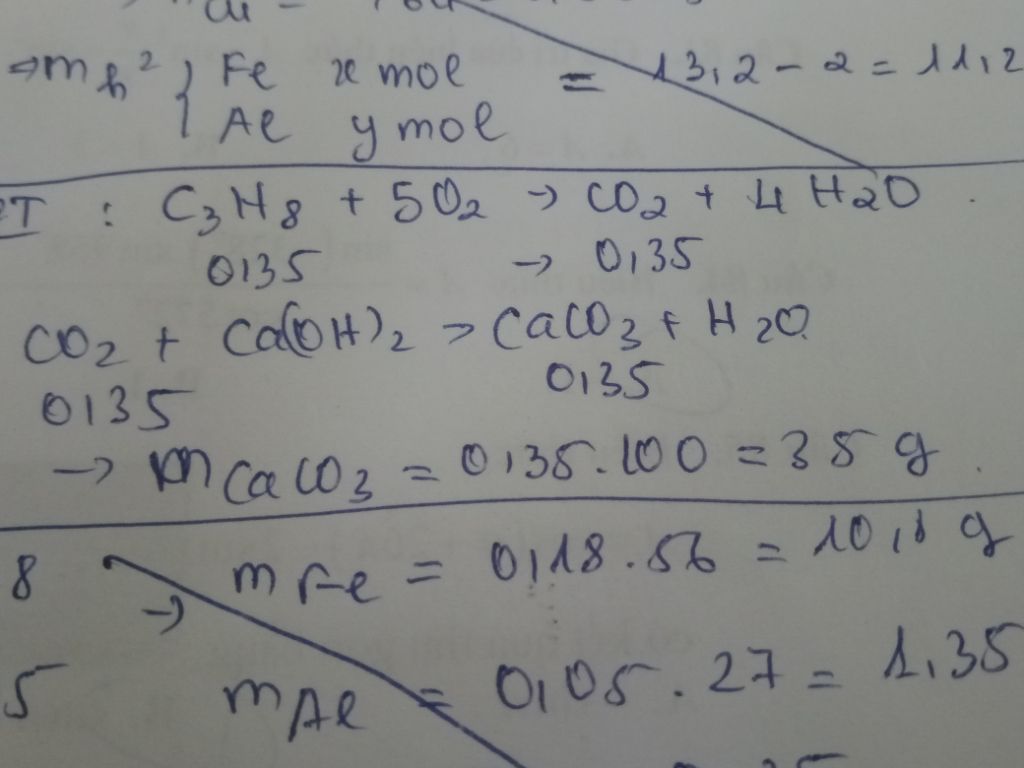 ⇒ m h² { Fe x mol = 13,2 - 2 = 11,2
Al y mol
: C₃H₈ + 5O₂ → CO₂ + 4 H₂O
0,35 → 0,35
CO₂ + Ca(OH)₂ → CaCO₃ + H₂O
0,35 0,35
→ m CaCO₃ = 0,35.100 = 35 g
8 → m Fe = 0,18.56 = 10,1 g
5 m Al = 0,05.27 = 1,35